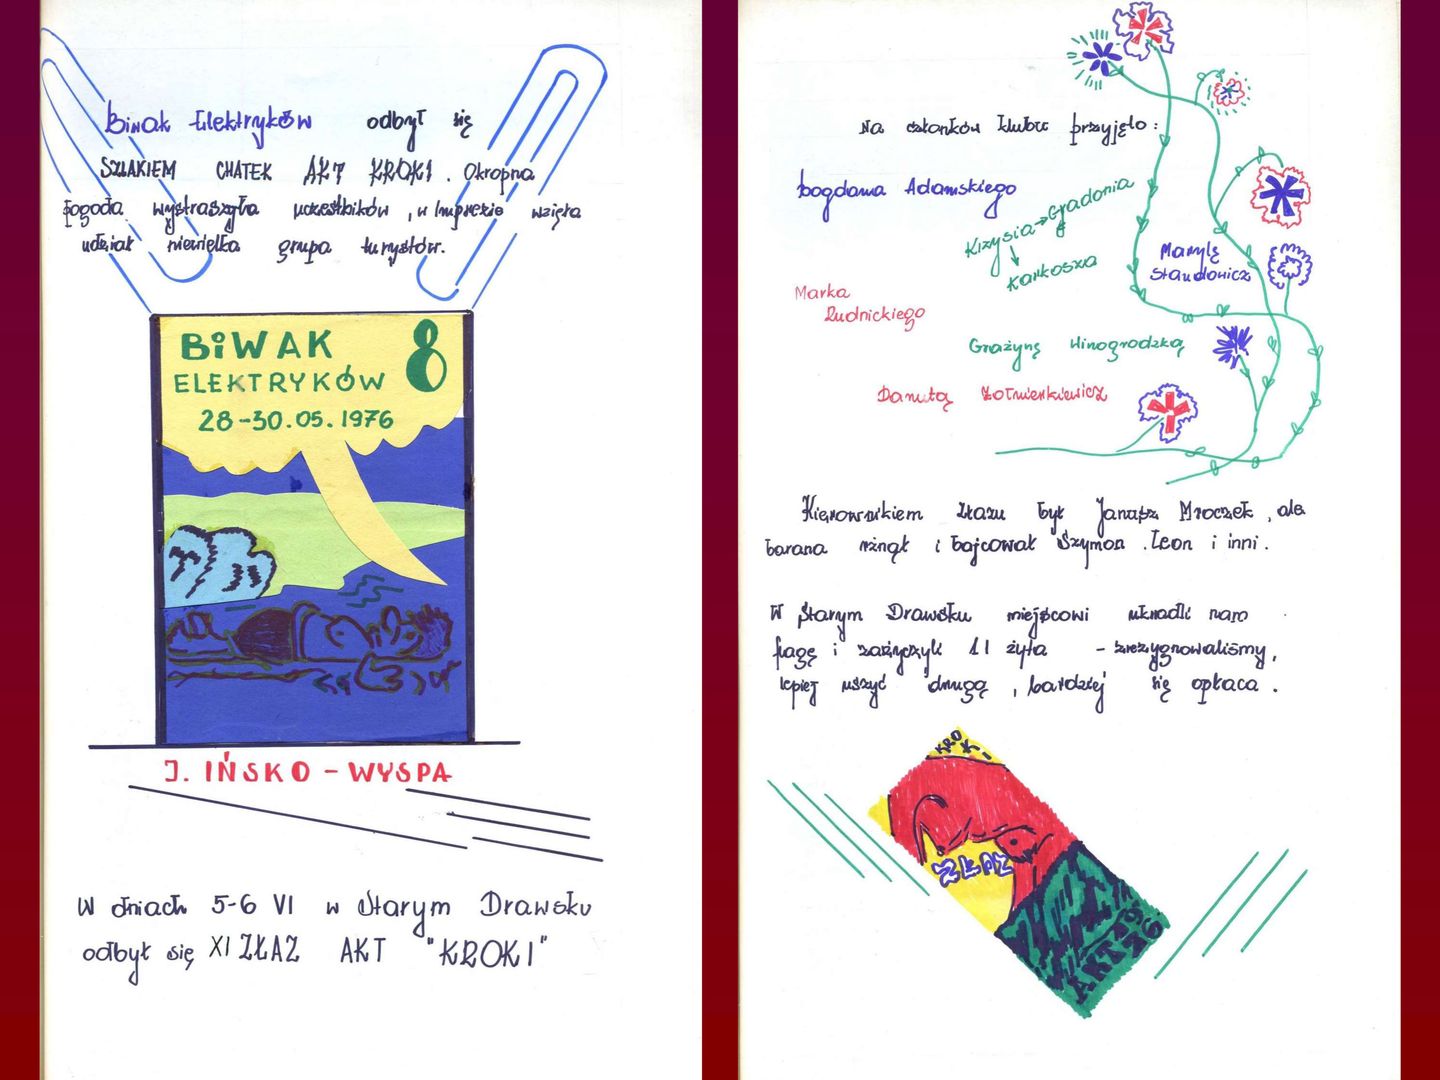 Biwak Elektryków odbył się
SZLAKIEM CHATEK AKT KROKI. Okropna
pogoda wystraszyła uczestników, w imprezie wzięła
udział niewielka grupa turystów.
BiWAK 8
ELEKTRYKÓW
28-30.05.1976
J. IŃSKO - WYSPA
W dniach 5-6 VI w Starym Drawsku
odbył się XI ZŁAZ AKT "KROKI"
Na członków klubu przyjęto:
Bogdana Adamskiego
Krzysia → Gradonia
↓
Karkosza
Marylę
Staudowicz
Marka
Rudnickiego
Grażynę Winogrodzką
Danutę Żołnierkiewicz
Kierownikiem złazu był Janusz Mroczek, ale
barana rżnął i bajcował Szymon. Leon i inni.
W Starym Drawsku miejscowi ukradli nam
flagę i zażyczyli 1 l żyta - zrezygnowaliśmy,
lepiej uszyć drugą, bardziej się opłaca.
KROKI
ZŁAZ